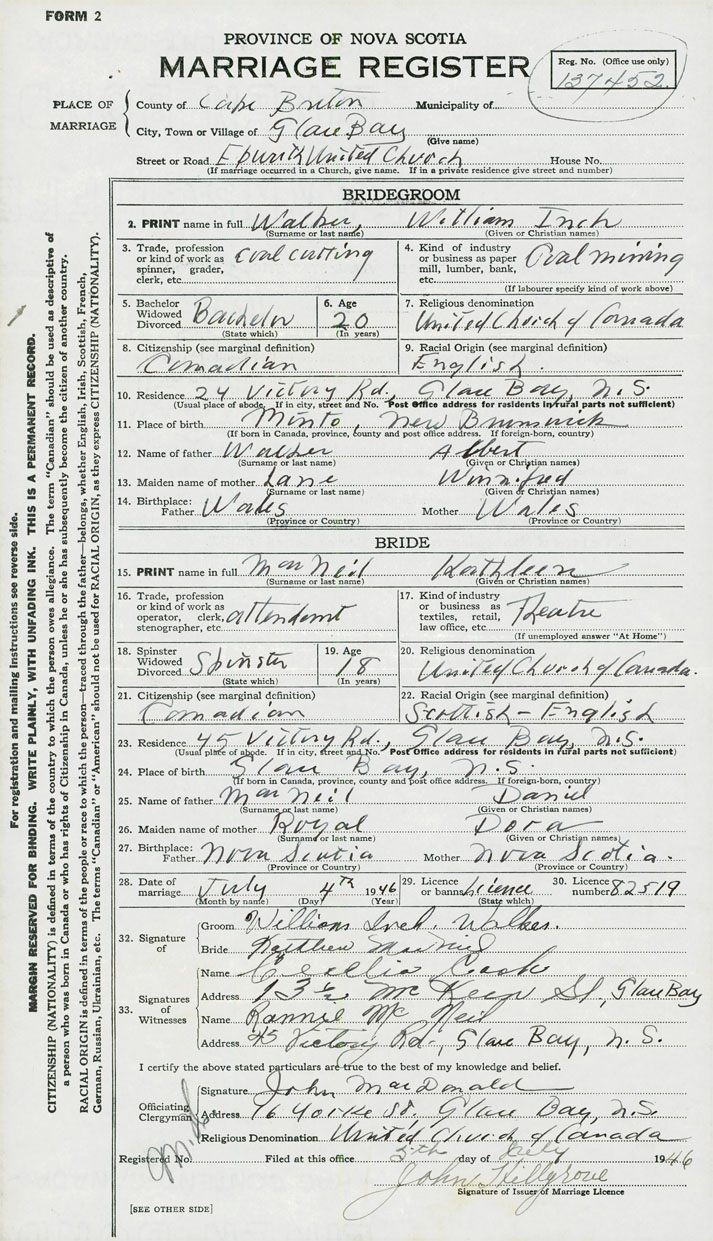 FORM 2
PROVINCE OF NOVA SCOTIA
MARRIAGE REGISTER
Reg. No. (Office use only)
137452
PLACE OF MARRIAGE
County of Cape Breton Municipality of
City, Town or Village of Glace Bay
(Give name)
Street or Road Epworth United Church House No.
(If marriage occurred in a Church, give name. If in a private residence give street and number)
BRIDEGROOM
2. PRINT name in full Walker, William Inch
(Surname or last name) (Given or Christian names)
3. Trade, profession or kind of work as spinner, grader, clerk, etc. Coal cutting
4. Kind of industry or business as paper mill, lumber, bank, etc. Coal mining
(If labourer specify kind of work above)
5. Bachelor Widowed Divorced Bachelor
(State which)
6. Age 20
(In years)
7. Religious denomination
United Church of Canada
8. Citizenship (see marginal definition)
Canadian
9. Racial Origin (see marginal definition)
English.
10. Residence 24 Victory Rd., Glace Bay, N.S.
(Usual place of abode. If in city, street and No. Post Office address for residents in rural parts not sufficient)
11. Place of birth Minto, New Brunswick
(If born in Canada, province, county and post office address. If foreign-born, country)
12. Name of father Walker Albert
(Surname or last name) (Given or Christian names)
13. Maiden name of mother Lane Winnifred
(Surname or last name) (Given or Christian names)
14. Birthplace:
Father Wales Mother Wales
(Province or Country) (Province or Country)
BRIDE
15. PRINT name in full MacNeil Kathleen
(Surname or last name) (Given or Christian names)
16. Trade, profession or kind of work as operator, clerk, stenographer, etc. attendant
17. Kind of industry or business as textiles, retail, law office, etc. Theatre
(If unemployed answer "At Home")
18. Spinster Widowed Divorced Spinster
(State which)
19. Age 18
(In years)
20. Religious denomination
United Church of Canada.
21. Citizenship (see marginal definition)
Canadian
22. Racial Origin (see marginal definition)
Scottish - English
23. Residence 45 Victory Rd., Glace Bay, N.S.
(Usual place of abode. If in city, street and No. Post Office address for residents in rural parts not sufficient)
24. Place of birth Glace Bay, N.S.
(If born in Canada, province, county and post office address. If foreign-born, country)
25. Name of father MacNeil Daniel
(Surname or last name) (Given or Christian names)
26. Maiden name of mother Royal Dora
(Surname or last name) (Given or Christian names)
27. Birthplace:
Father Nova Scotia Mother Nova Scotia.
(Province or Country) (Province or Country)
28. Date of marriage July 4th 1946
(Month by name) (Day) (Year)
29. Licence or banns Licence
(State which)
30. Licence number 82519
32. Signature of
Groom William Inch Walker.
Bride Kathleen MacNeil
33. Signatures of Witnesses
Name Cecelia Cook
Address 13½ McKeen St., Glace Bay
Name Rannie McNeil
Address 45 Victory Rd., Glace Bay, N.S.
I certify the above stated particulars are true to the best of my knowledge and belief.
Officiating Clergyman
Signature John MacDonald
Address 16 Yorke St. Glace Bay, N.S.
Religious Denomination United Church of Canada
Registered No. Filed at this office 5th day of July 1946
John Hillgrove
Signature of Issuer of Marriage Licence
[SEE OTHER SIDE]
For registration and mailing instructions see reverse side.
MARGIN RESERVED FOR BINDING. WRITE PLAINLY, WITH UNFADING INK. THIS IS A PERMANENT RECORD.
CITIZENSHIP (NATIONALITY) is defined in terms of the country to which the person owes allegiance. The term "Canadian" should be used as descriptive of
a person who was born in Canada or who has rights of Citizenship in Canada, unless he or she has subsequently become the citizen of another country.
RACIAL ORIGIN is defined in terms of the people or race to which the person—traced through the father—belongs, whether English, Irish, Scottish, French,
German, Russian, Ukrainian, etc. The terms "Canadian" or "American" should not be used for RACIAL ORIGIN, as they express CITIZENSHIP (NATIONALITY).